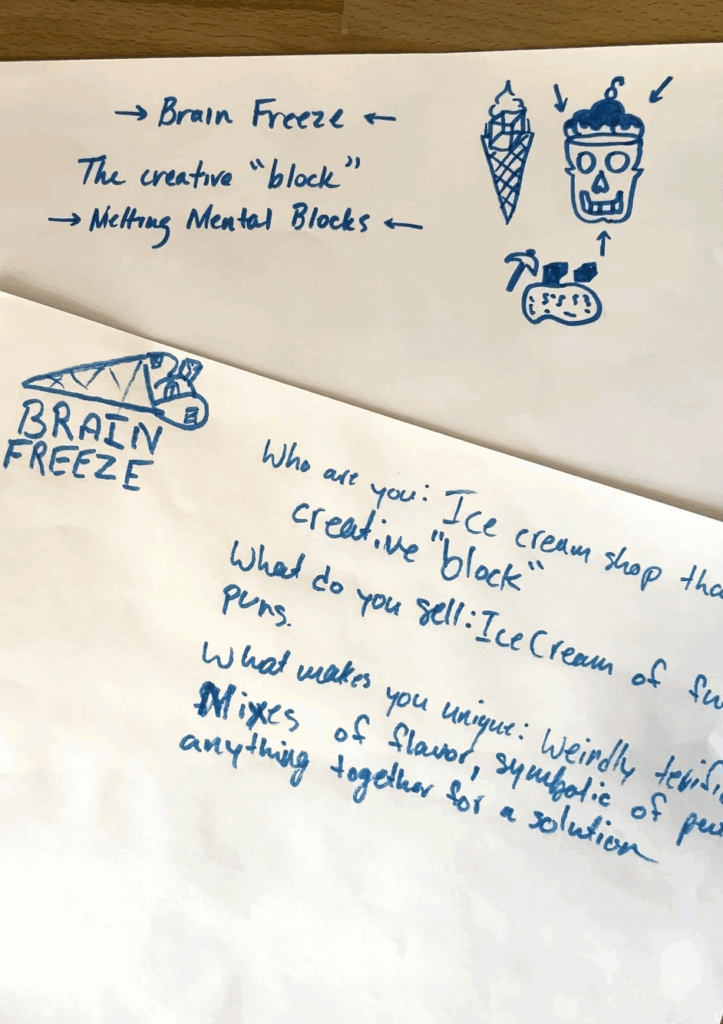 → Brain Freeze ←
The creative "block"
→ Melting Mental Blocks ←
BRAIN
FREEZE
Who are you: Ice cream shop
creative "block"
What do you sell: Ice Cream of
puns.
What makes you unique: Weirdly
Mixes of flavor, symbolic of
anything together for a solution